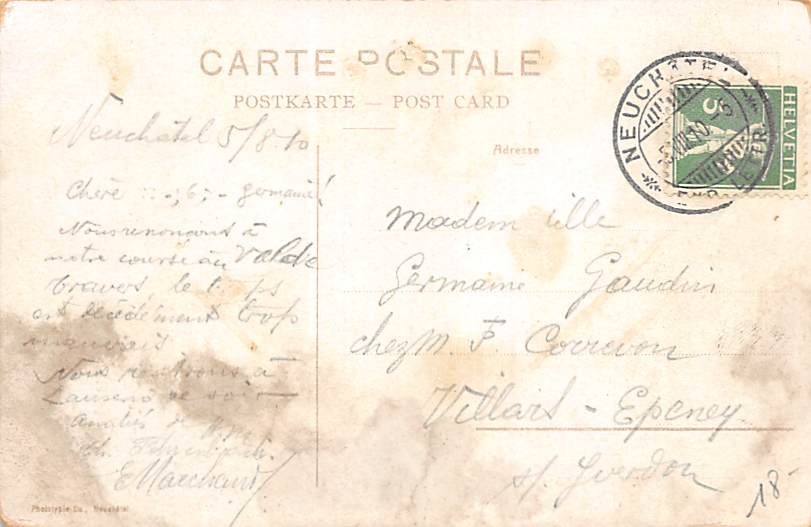 CARTE POSTALE
POSTKARTE — POST CARD
Adresse
NEUCHATEL
HELVETIA
5
Neuchâtel 5/8.10
Chère germaine!
Nous renonçons à
notre course au Val de
Travers le
est décidément trop
mauvais
Nous rentrons à
ce soir
Amitiés de
E Marchand
Mademoiselle
Germaine Gaudin
chez M. F. Correvon
Villars - Epeney
s/ Yverdon
18
Phototypie Co., Neuchâtel